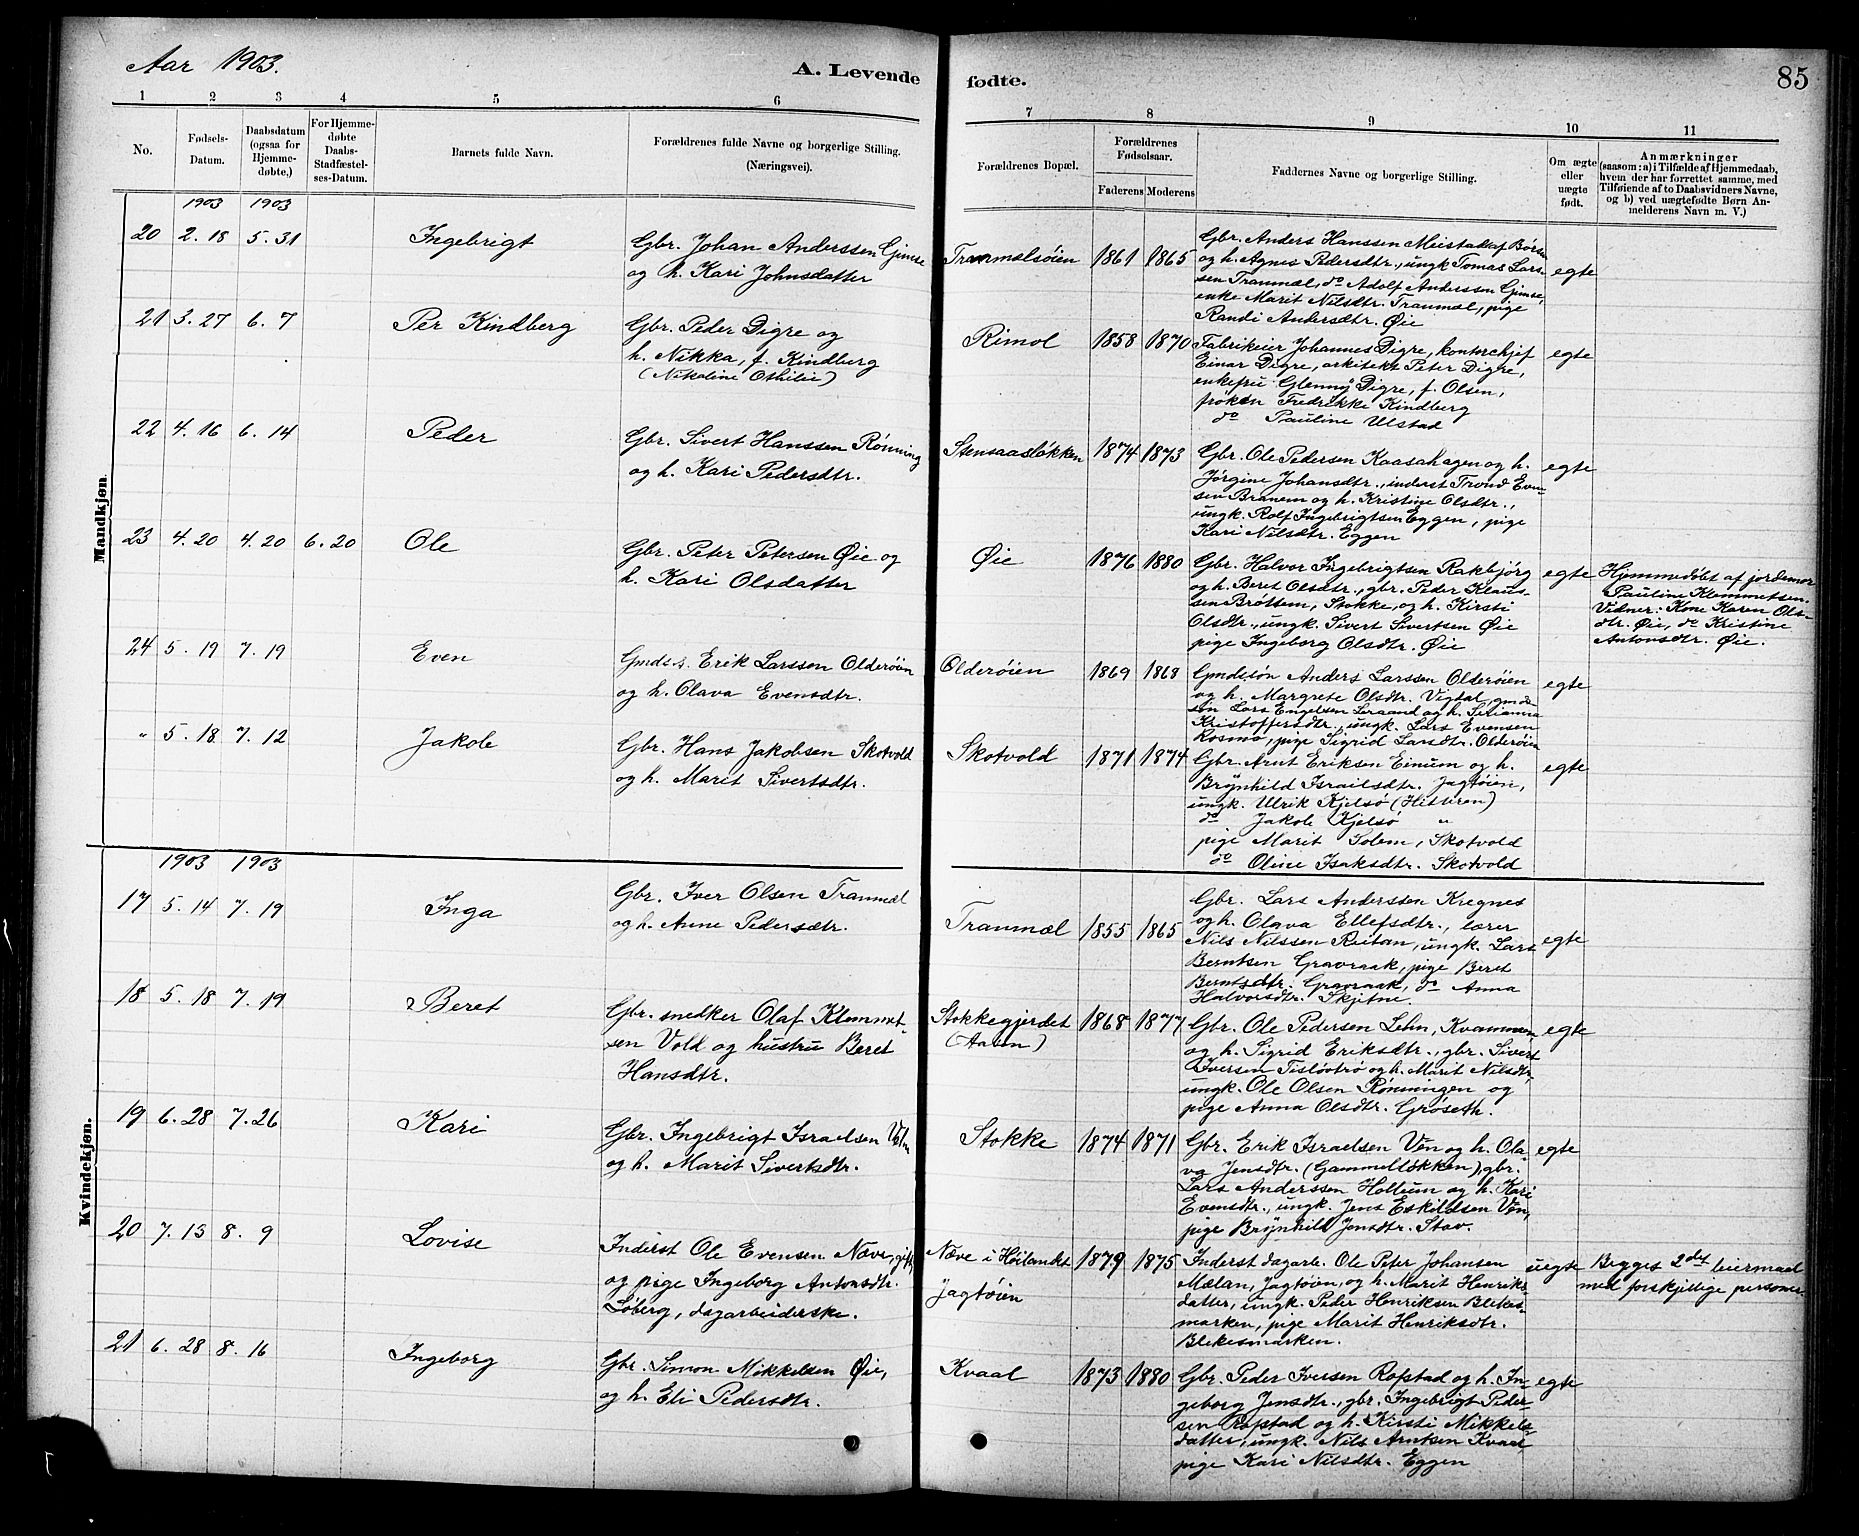 Aar 1903.
A. Levende fødte.
85
1 2 3 4 5 6 7 8 9 10 11
No.
Fødsels-Datum.
Daabsdatum (ogsaa for Hjemme-døbte,)
For Hjemme-døbte Daabs-Stadfæstel-ses-Datum.
Barnets fulde Navn.
Forældrenes fulde Navne og borgerlige Stilling.
(Næringsvei).
Forældrenes Bopæl.
Forældrenes Fødselsaar.
Faderens Moderens
Faddernes Navne og borgerlige Stilling.
Om ægte eller uægte født.
Anmærkninger
(saasom: a) i Tilfælde af Hjemmedaab,
hvem der har forrettet samme, med
Tilføiende af to Daabsvidners Navne,
og b) ved uægtefødte Børn An-
melderens Navn m. V.)
Mandkjøn.
1903 1903
20 2.18 5.31 Ingebrigt
Gbr. Johan Anderssen Gimse
og h. Kari Johnsdatter
Tranmælsøien 1861 1865
Gbr. Anders Hanssen Meistad af Børsen
og h. Agnes Pedersdtr., ungk Tomas Lars-
sen Tranmæl, do Adolf Anderssen Gimse,
enke Marit Nilsdtr. Tranmæl, pige
Randi Andersdtr. Øie
egte
21 3.27 6.7 Per Kindberg
Gbr. Peder Digre og
h. Nikka, f. Kindberg
(Nikoline Othilie)
Rimol 1858 1870
Fabrikeier Johannes Digre, kontorchef
Einar Digre, arkitekt Peter Digre,
enkefru Glenny Digre, f. Olsen,
frøken Fredrikke Kindberg
do Pauline Ulstad
egte
22 4.16 6.14 Peder
Gbr. Sivert Hanssen Rønning
og h. Kari Pedersdtr.
Stensaasløkken 1874 1873
Gbr. Ole Pedersen Kaasahagen og h.
Jørgine Johansdtr., inderst Trond Even-
sen Branem og h. Kristine Olsdtr.,
ungk. Rolf Ingebrigtsen Eggen, pige
Kari Nilsdtr. Eggen
egte
23 4.20 4.20 6.20 Ole
Gbr. Peter Petersen Øie og
h. Kari Olsdatter
Øie 1876 1880
Gbr. Halvor Ingebrigtsen Rakbjørg
og h. Beret Olsdtr., gbr. Peder Klaus-
sen Brøttem, Stokke, og h. Kirsti
Olsdtr., ungk. Sivert Sivertsen Øie
pige Ingeborg Olsdtr. Øie
egte
Hjemmedøbt af jordemor
Pauline Klemmetsen.
Vidner: Kone Karen Ols-
dtr. Øie, do Kristine
Antonsdtr. Øie.
24 5.19 7.19 Even
Gmds.s. Erik Larssen Olderøien
og h. Olava Evensdtr.
Olderøien 1869 1868
Gmdssøn Anders Larssen Olderøien
og h. Margrete Olsdtr. Vigtal, gmds-
søn Lars Engelsen Leraand og h. Serianna
Kristoffersdtr., ungk. Lars Evensen
Rosmo, pige Sigrid Larsdtr. Olderøien
egte
" 5.18 7.12 Jakob
Gbr. Hans Jakobsen Skotvold
og h. Marit Sivertsdtr.
Skotvold 1871 1874
Gbr. Arnt Eriksen Einum og h.
Brynhild Israilsdtr. Jagtøien,
ungk. Ulrik Kjelsø (Hitteren)
do Jakob Kjelsø "
pige Marit Solem, Skotvold
do Oline Isaksdtr. Skotvold
egte
Kvindekjøn.
1903 1903
17 5.14 7.19 Inga
Gbr. Iver Olsen Tranmæl
og h. Anne Pedersdtr.
Tranmæl 1855 1865
Gbr. Lars Anderssen Kregnes
og h. Olava Ellefsdtr., lærer
Nils Nilssen Reitan, ungk. Lars
Berntsen Gravraak, pige Beret
Berntsdtr. Gravraak, do Anna
Halvorsdtr. Skjetne.
egte
18 5.18 7.19 Beret
Gbr. snedker Olaf Klemmet-
sen Vold og hustru Beret
Hansdtr.
Stokkegjerdet
(Aasen)
1868 1877
Gbr. Ole Pedersen Lehn, Kvammen
og h. Sigrid Eriksdtr., gbr. Sivert
Iversen Tisløvtrø og h. Marit Nilsdtr,
ungk. Ole Olsen Rønningen og
pige Anna Olsdtr. Grøseth.
egte
19 6.28 7.26 Kari
Gbr. Ingebrigt Israelsen
og h. Marit Sivertsdtr.
Stokke 1874 1871
Gbr. Erik Israelsen Ven og h. Ola-
va Jensdtr. (Gammelløkken), gbr.
Lars Anderssen Hollum og h. Kari
Evensdtr., ungk. Jens Eskildsen Ven,
pige Brynhild Jonsdtr. Stav.
egte
20 7.13 8.9 Lovise
Inderst Ole Evensen Næve, gift,
og pige Ingeborg Antonsdtr.
Løberg, dagarbeiderske.
Næve i Høilandet
Jagtøien
1879 1875
Inderst dagarb. Ole Peter Johansen
Mælan, Jagtøien, og h. Marit Henriks-
datter, ungk. Peder Henriksen Blekes-
marken, pige Marit Henriksdtr.
Blekesmarken.
uegte
Begges 2det leiermaal
med forskjellige personer.
21 6.28 8.16 Ingeborg
Gbr. Simon Mikkelsen Øie,
og h. Eli Pedersdtr.
Kvaal 1873 1880
Gbr. Peder Iversen Ropstad og h. In-
geborg Jensdtr., gbr. Ingebrigt Peder-
sen Ropstad og h. Kirsti Mikkels-
datter, ungk. Nils Arntsen Kvaal
pige Kari Nilsdtr. Eggen
egte